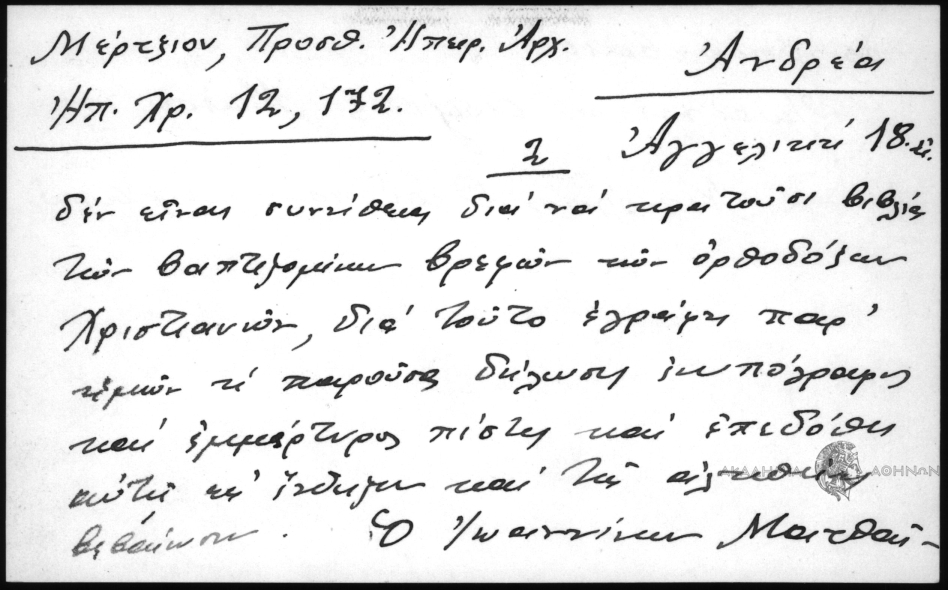 Μέρτζιου, Προσθ. Ἠπειρ. Ἀρχ.
Ἠπ. Χρ. 12, 172.
Ἀνδρέα
Ἀγγελική 18.
2
δέν εἶναι συνήθεια διά νά κρατοῦσι βιβλία
τῶν βαπτιζομένων βρεφῶν τῶν ὀρθοδόξων
Χριστιανῶν, διά τοῦτο ἐγράφη παρ'
ἡμῶν ἡ παροῦσα δήλωσις ἐνυπόγραφος
καί ἐμμάρτυρος πίστις καί ἐπεδόθη
αὐτῇ εἰς ἔνδειξιν καί τῆς ἀληθείας
βεβαίωσιν. Ὁ Ἰωαννίνων Ματθαῖ-
ΑΚΑΔΗΜΙΑ ΑΘΗΝΩΝ